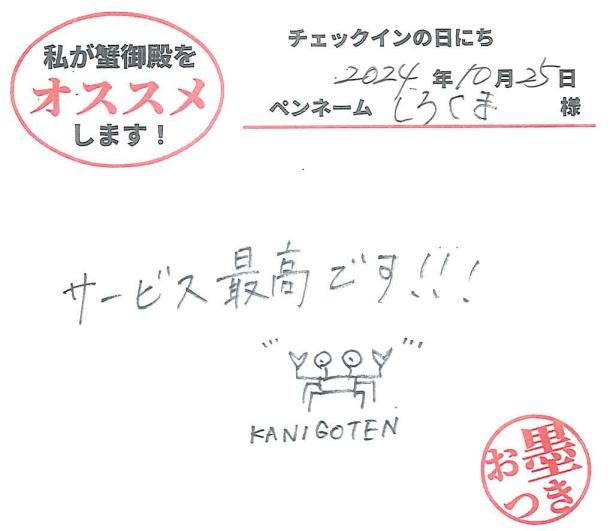 私が蟹御殿を
オススメ
します！
チェックインの日にち
2024年10月25日
ペンネーム しろくま 様
サービス最高です!!!
KANIGOTEN
お墨つき